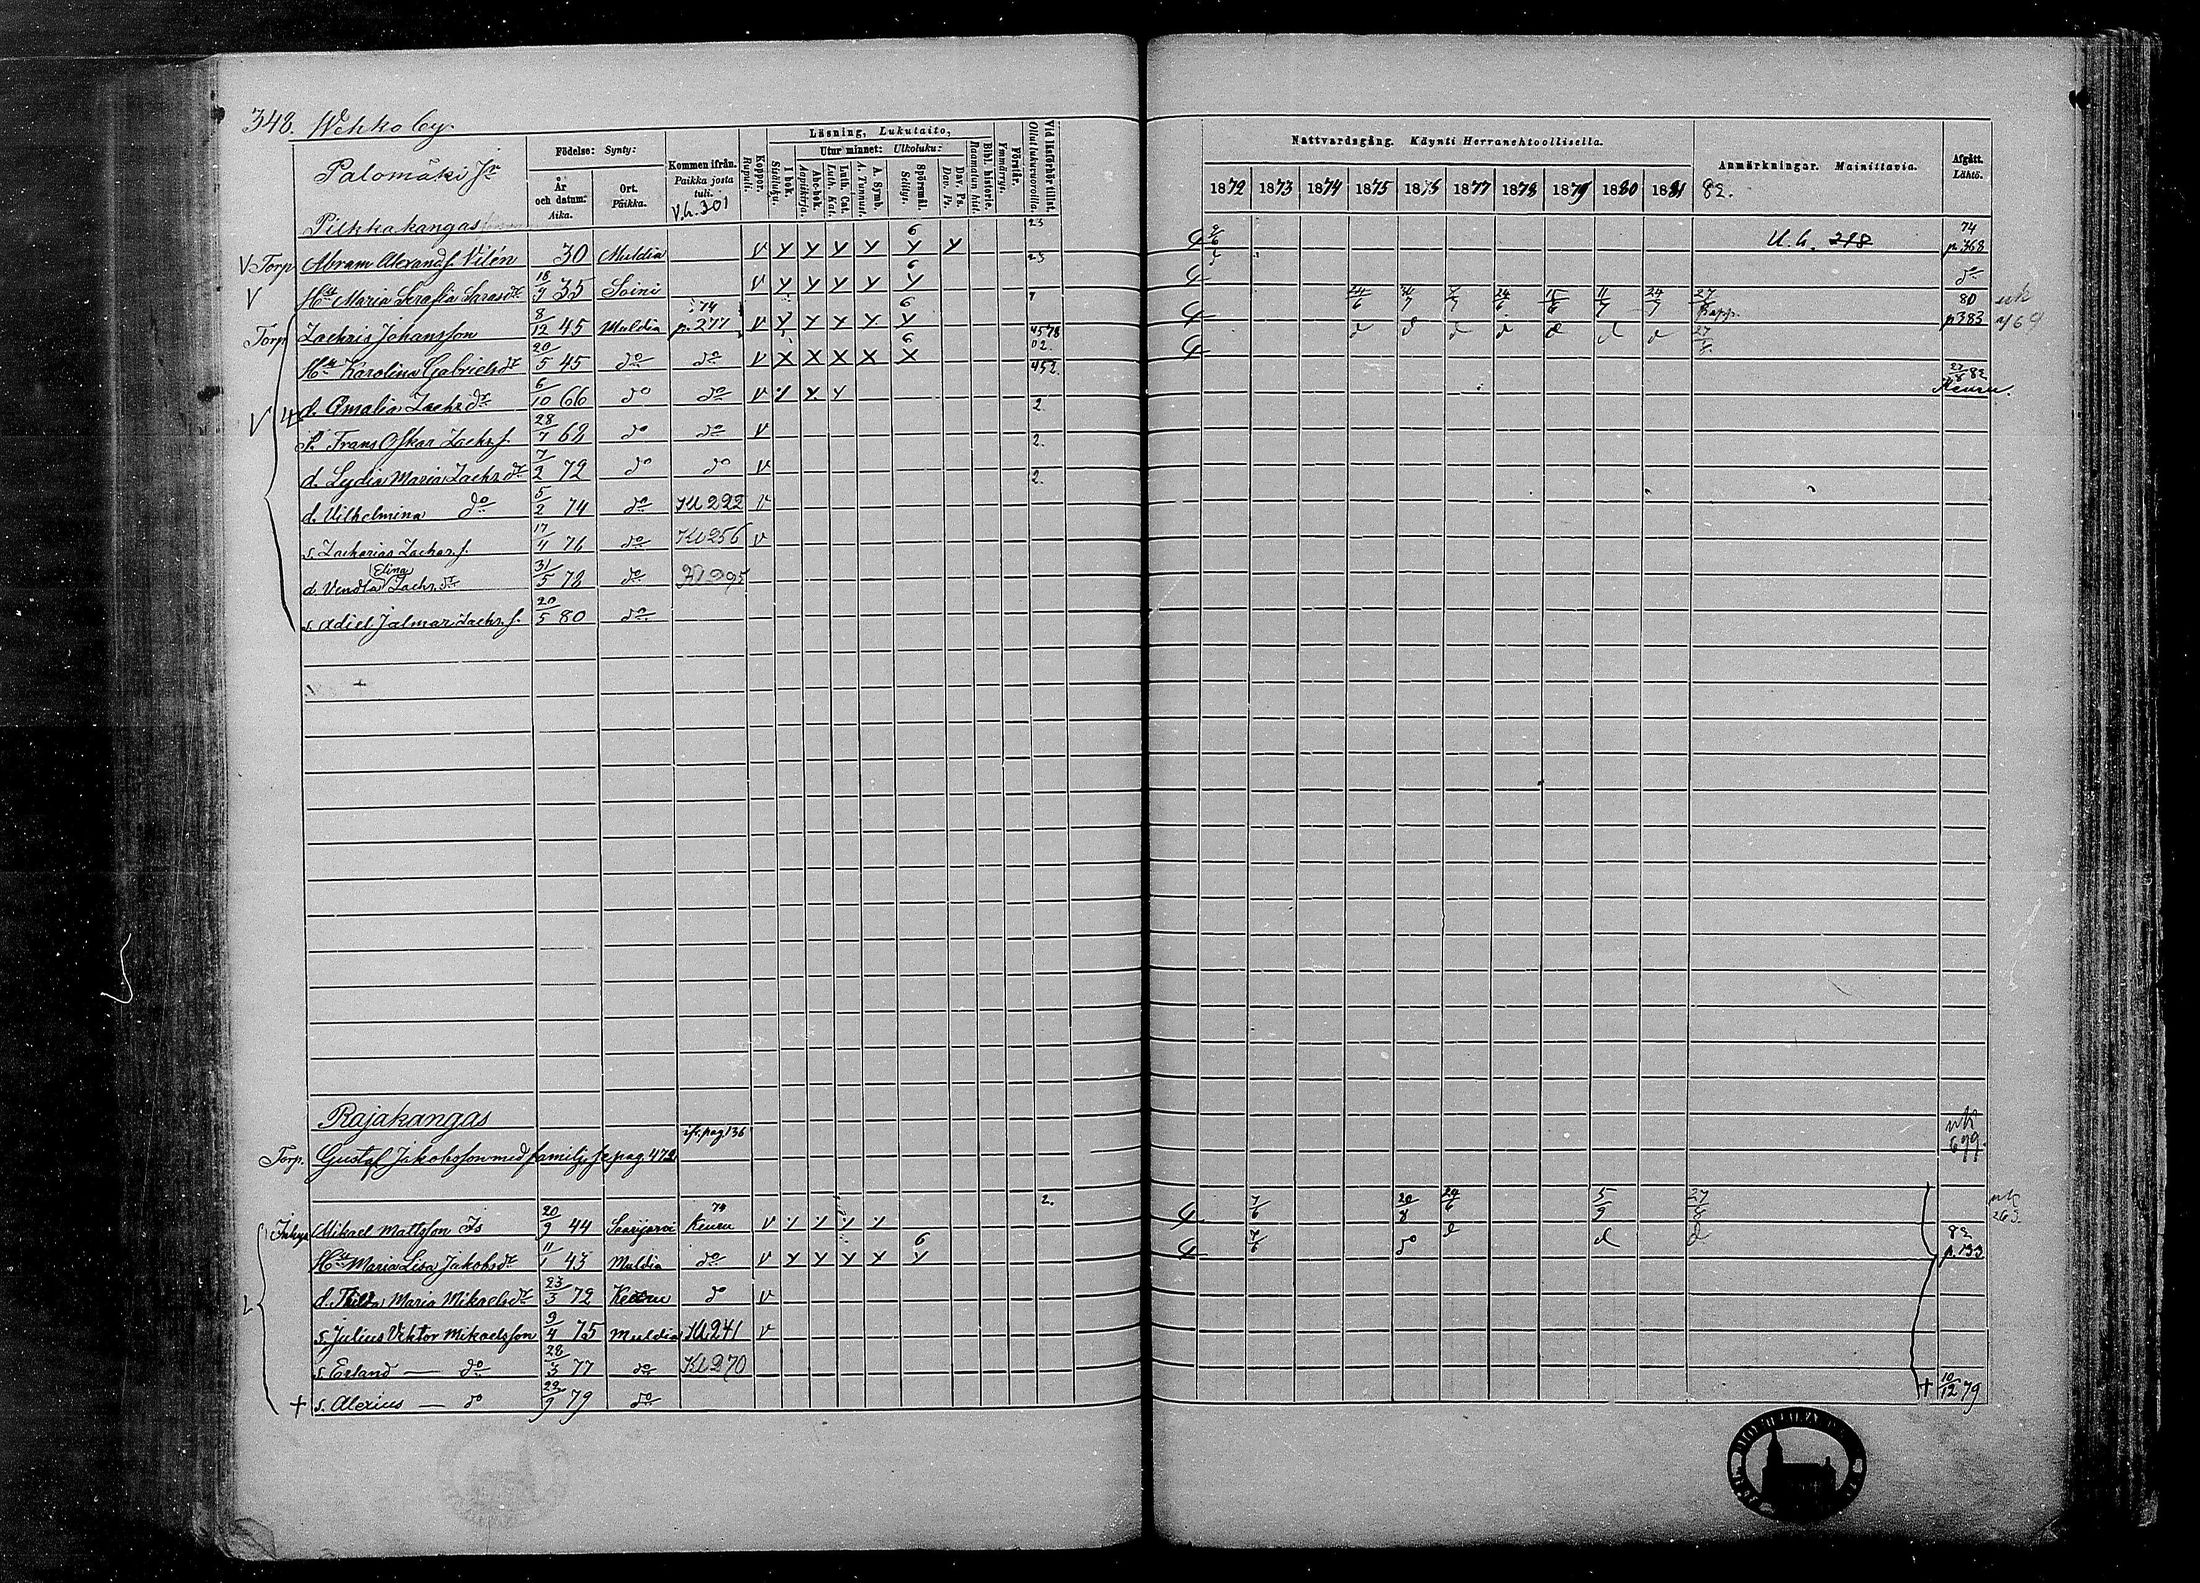 348. Wehko by.
Palomäki Jr
Födelse: Synty:
År och datum. Aika.
Ort. Paikka.
Kommen ifrån. Paikka josta tuli.
V.h. 301
Koppor. Rupuli.
Läsning, Lukutaito,
Utur minnet: Ulkoluku:
I bok. Sisäluku.
Abc-bok. Aapiskirja.
Luth. Cat. Luth. Kat.
A. Symb. A. Tunnust.
Spörsmål. Selitys.
Dav. Ps. Dav. Ps.
Bibl. historie. Raamatun hist.
Förstår. Ymmärrys.
Vid läsförhör tillst. Ollut lukuvuoroilla.
Nattvardsgång. Käynti Herranehtoollisella.
1872 1873 1874 1875 1876 1877 1878 1879 1880 1881 82.
Anmärkningar. Mainittavia.
Afgått. Lähtö.
Pilkkakangas 23
V Torp Abram Alexands. Vilén 30 Muldia V 6 9/6 U.h. 218 74 p. 368
V Hu Maria Serafia Sarasdr 18/9 35 Soini V 6 do
Torp Zachris Johansson 8/12 45 Muldia 74 p. 277 V 6 24/6 7/7 24/6 11/7 24/7 27/8 80 p 383
Hu Karolina Gabrielsdr 20/5 45 do do V 6 d d d d d d d 27/8
d. Amalia Zachr dr 6/10 66 do do V 82 Keuru.
s. Frans Oskar Zachr. s. 28/7 68 do do V 2.
d. Lydia Maria Zachr dr 7/2 72 do do V 2.
d. Vilhelmina do 5/2 74 do Kl 222 V 2.
s. Zacharias Zachar. s. 17/4 76 do Kl 256 V
d. Vendla Elina Zachr. dr 31/5 78 do
s. Adiel Jalmar Zachr. s. 20/5 80 do
Rajakangas
ifr. pag 136
Torp. Gustaf Jakobsson med familj, se pag 472 699
Inhys Mikael Mattsson Is 20/9 44 Saarijärvi 74 Keuru V 2. 7/6 20/8 24/6 5/9 27/8
Hu Maria Lisa Jakobsdr 11/1 43 Muldia do V 6 7/6 do d d d 82 p. 133
d. Hilda Maria Mikaelsdr 23/3 72 Keuru do V
s. Julius Viktor Mikaelsson 9/4 75 Muldia Kl 241 V
s. Erland — do 28/3 77 do Kl 270
+ s. Alexius — do 29/9 79 do + 10/12 79